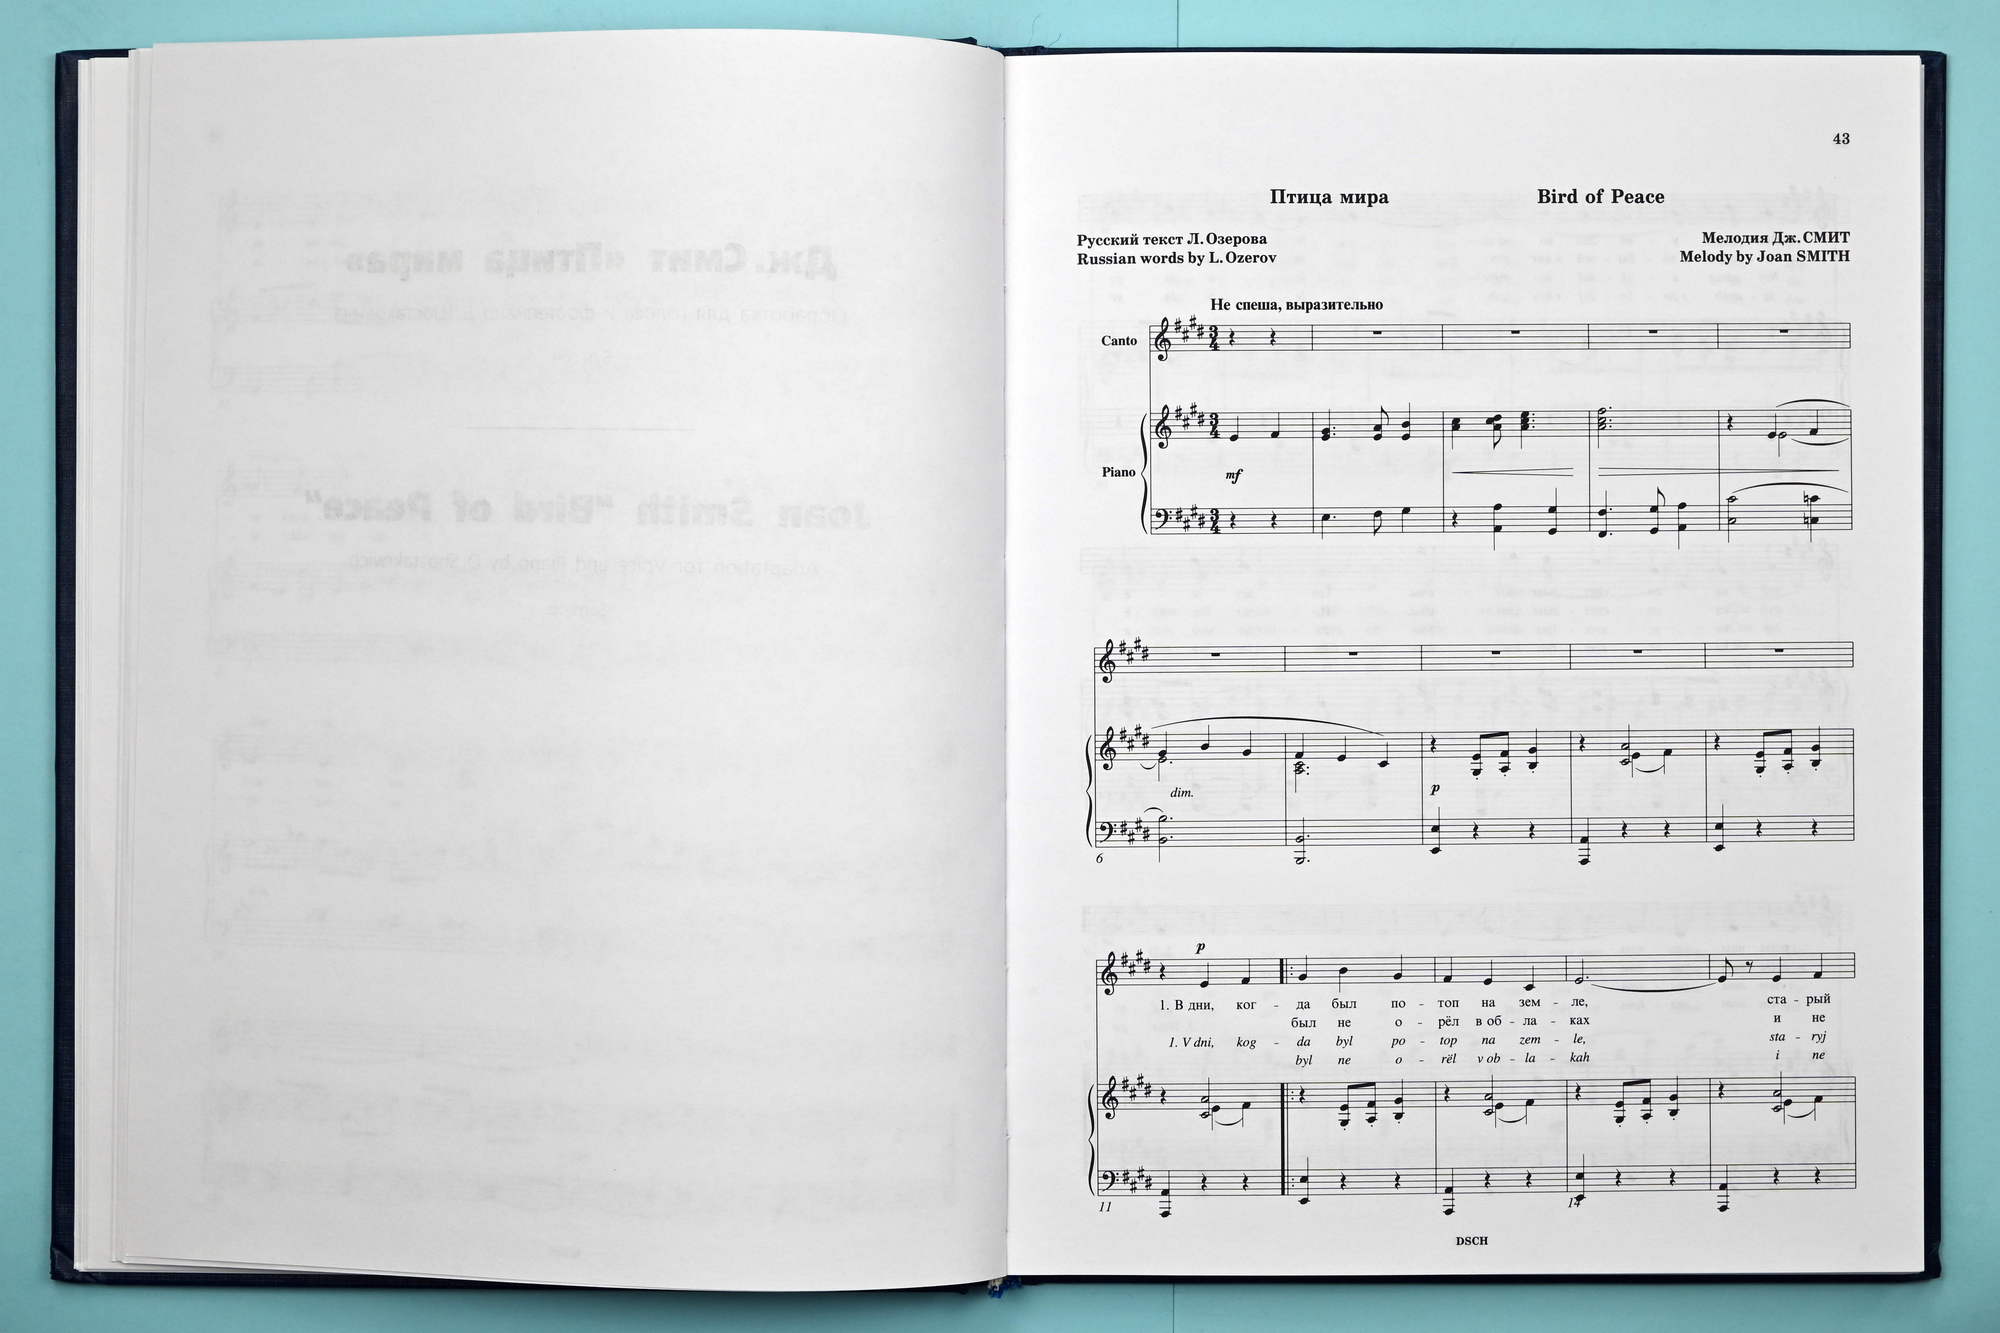 43
Птица мира Bird of Peace
Русский текст Л. Озерова Мелодия Дж. СМИТ
Russian words by L. Ozerov Melody by Joan SMITH
Не спеша, выразительно
Canto
Piano
mf
dim.
p
6
p
1. В дни, ког - да был по - топ на зем - ле, ста - рый
был не о - рёл в об - ла - ках и не
1. V dni, kog - da byl po - top na zem - le, sta - ryj
byl ne o - rël v ob - la - kah i ne
11 14
DSCH